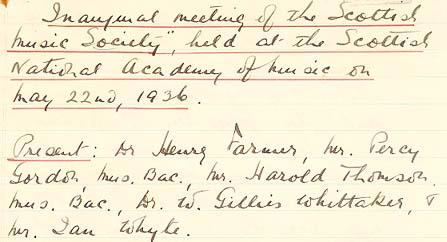 Inaugural meeting of the Scottish
Music Society", held at the Scottish
National Academy of Music on
May 22nd, 1936.
Present: Dr Henry Farmer, Mr. Percy
Gordon, Mus. Bac., Mr. Harold Thomson.
Mus. Bac., Dr. W. Gillies Whittaker, &
Mr. Ian Whyte.